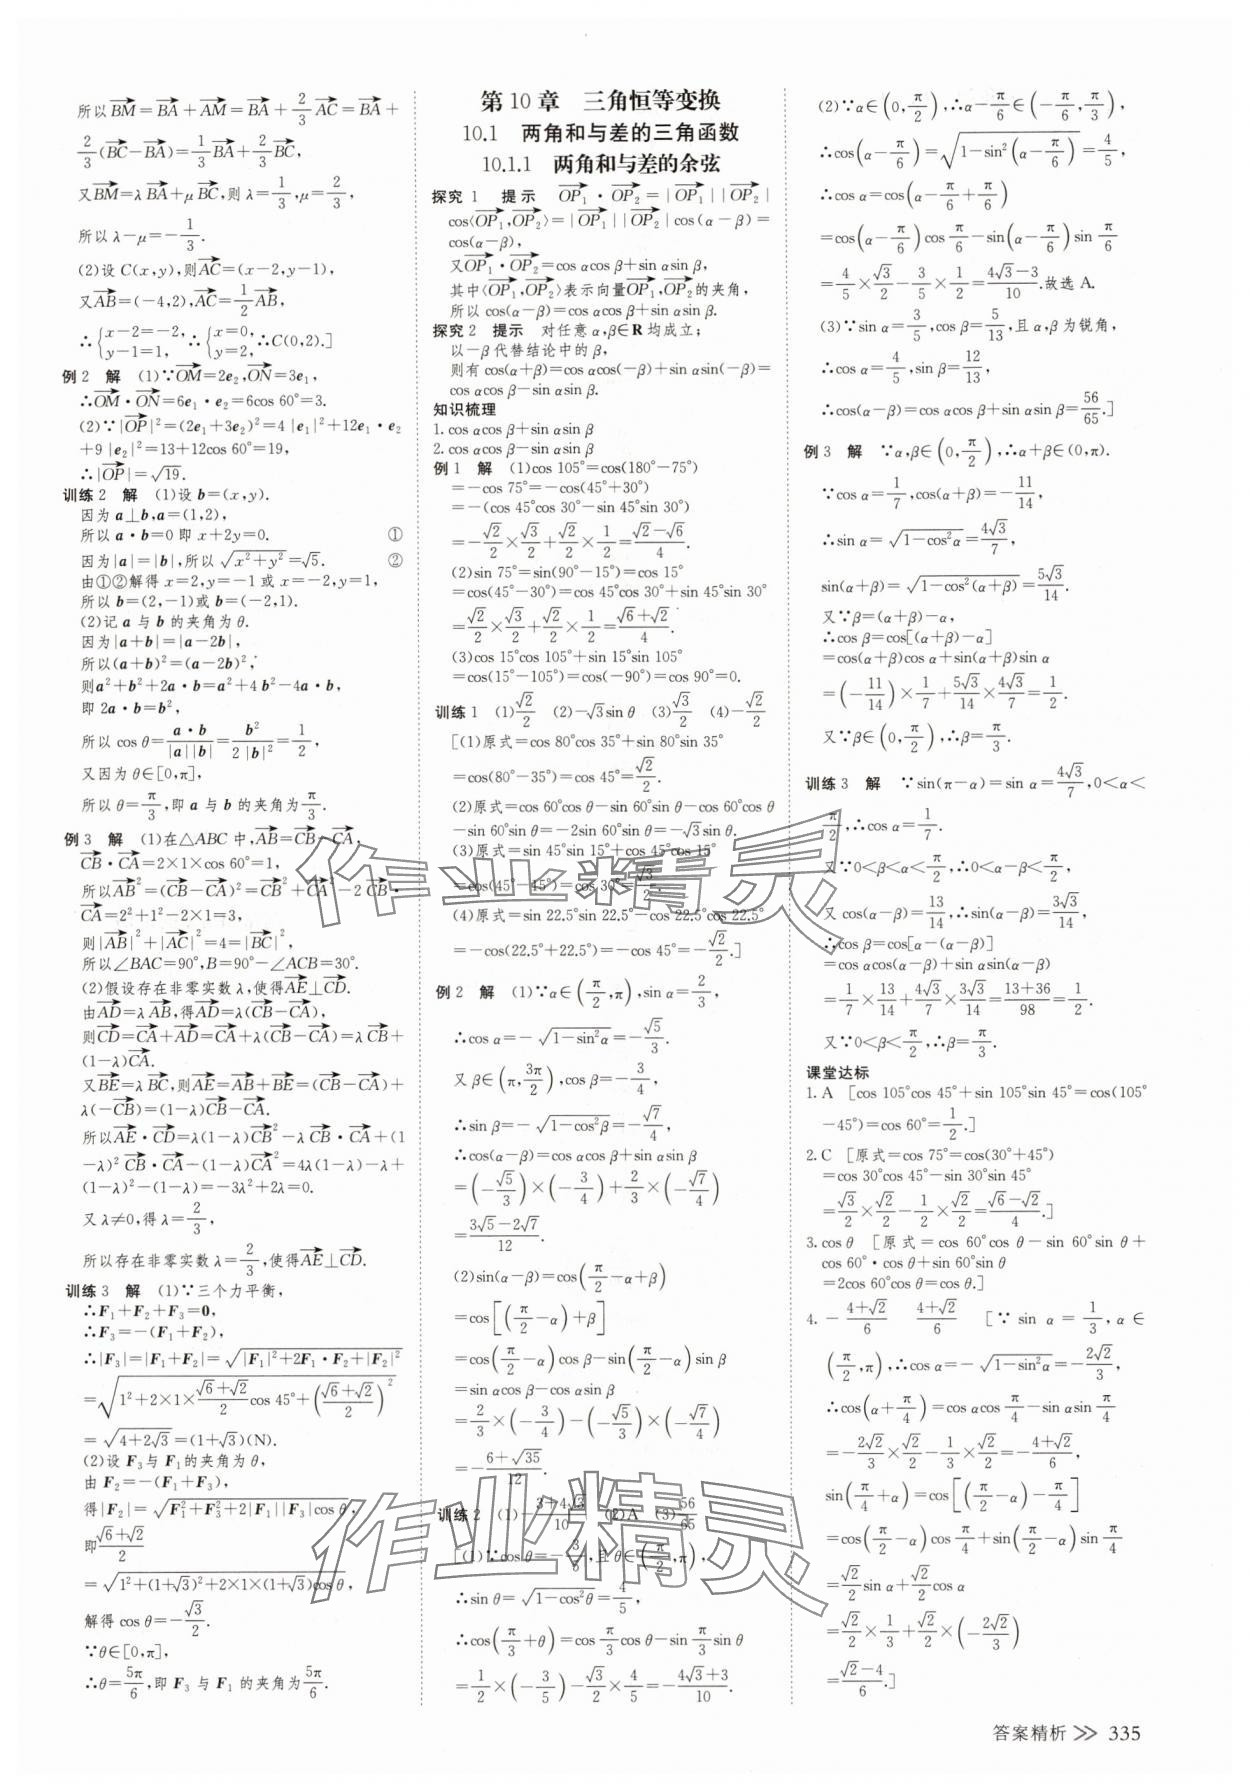 所以BM=BA+AM=BA+2/3 AC=BA+
2/3(BC-BA)=1/3 BA+2/3 BC,
又BM=λBA+μBC,则λ=1/3,μ=2/3,
所以λ-μ=-1/3.
(2)设C(x,y),则AC=(x-2,y-1),
又AB=(-4,2),AC=1/2 AB,
∴{x-2=-2, y-1=1, ∴{x=0, y=2, ∴C(0,2).]
例2 解 (1)∵OM=2e₂,ON=3e₁,
∴OM·ON=6e₁·e₂=6cos 60°=3.
(2)∵|OP|²=(2e₁+3e₂)²=4|e₁|²+12e₁·e₂
+9|e₂|²=13+12cos 60°=19,
∴|OP|=√19.
训练2 解 (1)设b=(x,y).
因为a⊥b,a=(1,2),
所以a·b=0即x+2y=0. ①
因为|a|=|b|,所以√(x²+y²)=√5. ②
由①②解得x=2,y=-1或x=-2,y=1,
所以b=(2,-1)或b=(-2,1).
(2)记a与b的夹角为θ.
因为|a+b|=|a-2b|,
所以(a+b)²=(a-2b)²,
则a²+b²+2a·b=a²+4b²-4a·b,
即2a·b=b²,
所以cos θ=a·b/(|a||b|)=b²/(2|b|²)=1/2,
又因为θ∈[0,π],
所以θ=π/3,即a与b的夹角为π/3.
例3 解 (1)在△ABC中,AB=CB-CA,
CB·CA=2×1×cos 60°=1,
所以AB²=(CB-CA)²=CB²+CA²-2CB·
CA=2²+1²-2×1=3,
则|AB|²+|AC|²=4=|BC|²,
所以∠BAC=90°,B=90°-∠ACB=30°.
(2)假设存在非零实数λ,使得AE⊥CD.
由AD=λAB,得AD=λ(CB-CA),
则CD=CA+AD=CA+λ(CB-CA)=λCB+
(1-λ)CA.
又BE=λBC,则AE=AB+BE=(CB-CA)+
λ(-CB)=(1-λ)CB-CA.
所以AE·CD=λ(1-λ)CB²-λCB·CA+(1
-λ)²CB·CA-(1-λ)CA²=4λ(1-λ)-λ+
(1-λ)²-(1-λ)=-3λ²+2λ=0.
又λ≠0,得λ=2/3,
所以存在非零实数λ=2/3,使得AE⊥CD.
训练3 解 (1)∵三个力平衡,
∴F₁+F₂+F₃=0,
∴F₃=-(F₁+F₂),
∴|F₃|=|F₁+F₂|=√(|F₁|²+2F₁·F₂+|F₂|²)
=√(1²+2×1×(√6+√2)/2 cos 45°+((√6+√2)/2)²)
=√(4+2√3)=(1+√3)(N).
(2)设F₃与F₁的夹角为θ,
由F₂=-(F₁+F₃),
得|F₂|=√(F₁²+F₃²+2|F₁||F₃|cos θ),
即(√6+√2)/2
=√(1²+(1+√3)²+2×1×(1+√3)cos θ),
解得cos θ=-√3/2.
∵θ∈[0,π],
∴θ=5π/6,即F₃与F₁的夹角为5π/6.
第10章 三角恒等变换
10.1 两角和与差的三角函数
10.1.1 两角和与差的余弦
探究1 提示 OP₁·OP₂=|OP₁||OP₂|
cos⟨OP₁,OP₂⟩=|OP₁||OP₂|cos(α-β)=
cos(α-β),
又OP₁·OP₂=cos αcos β+sin αsin β,
其中⟨OP₁,OP₂⟩表示向量OP₁,OP₂的夹角,
所以cos(α-β)=cos αcos β+sin αsin β.
探究2 提示 对任意α,β∈R均成立;
以-β代替结论中的β,
则有cos(α+β)=cos αcos(-β)+sin αsin(-β)=
cos αcos β-sin αsin β.
知识梳理
1.cos αcos β+sin αsin β
2.cos αcos β-sin αsin β
例1 解 (1)cos 105°=cos(180°-75°)
=-cos 75°=-cos(45°+30°)
=-(cos 45°cos 30°-sin 45°sin 30°)
=-√2/2×√3/2+√2/2×1/2=(√2-√6)/4.
(2)sin 75°=sin(90°-15°)=cos 15°
=cos(45°-30°)=cos 45°cos 30°+sin 45°sin 30°
=√2/2×√3/2+√2/2×1/2=(√6+√2)/4.
(3)cos 15°cos 105°+sin 15°sin 105°
=cos(15°-105°)=cos(-90°)=cos 90°=0.
训练1 (1)√2/2 (2)-√3sin θ (3)√3/2 (4)-√2/2
[(1)原式=cos 80°cos 35°+sin 80°sin 35°
=cos(80°-35°)=cos 45°=√2/2.
(2)原式=cos 60°cos θ-sin 60°sin θ-cos 60°cos θ
-sin 60°sin θ=-2sin 60°sin θ=-√3sin θ.
(3)原式=sin 45°sin 15°+cos 45°cos 15°
=cos(45°-15°)=cos 30°=√3/2.
(4)原式=sin 22.5°sin 22.5°-cos 22.5°cos 22.5°
=-cos(22.5°+22.5°)=-cos 45°=-√2/2.]
例2 解 (1)∵α∈(π/2,π),sin α=2/3,
∴cos α=-√(1-sin²α)=-√5/3.
又β∈(π,3π/2),cos β=-3/4,
∴sin β=-√(1-cos²β)=-√7/4,
∴cos(α-β)=cos αcos β+sin αsin β
=(-√5/3)×(-3/4)+2/3×(-√7/4)
=(3√5-2√7)/12.
(2)sin(α-β)=cos(π/2-α+β)
=cos[(π/2-α)+β]
=cos(π/2-α)cos β-sin(π/2-α)sin β
=sin αcos β-cos αsin β
=2/3×(-3/4)-(-√5/3)×(-√7/4)
=-(6+√35)/12.
训练2 (1)-(3+4√3)/10 (2)A (3)56/65
[(1)∵cos θ=-3/5,且θ∈(π/2,π),
∴sin θ=√(1-cos²θ)=4/5,
∴cos(π/3+θ)=cos π/3 cos θ-sin π/3 sin θ
=1/2×(-3/5)-√3/2×4/5=-(4√3+3)/10.
(2)∵α∈(0,π/2),∴α-π/6∈(-π/6,π/3),
∴cos(α-π/6)=√(1-sin²(α-π/6))=4/5,
∴cos α=cos(α-π/6+π/6)
=cos(α-π/6)cos π/6-sin(α-π/6)sin π/6
=4/5×√3/2-3/5×1/2=(4√3-3)/10.故选A.
(3)∵sin α=3/5,cos β=5/13,且α,β为锐角,
∴cos α=4/5,sin β=12/13,
∴cos(α-β)=cos αcos β+sin αsin β=56/65.]
例3 解 ∵α,β∈(0,π/2),∴α+β∈(0,π).
∵cos α=1/7,cos(α+β)=-11/14,
∴sin α=√(1-cos²α)=4√3/7,
sin(α+β)=√(1-cos²(α+β))=5√3/14.
又∵β=(α+β)-α,
∴cos β=cos[(α+β)-α]
=cos(α+β)cos α+sin(α+β)sin α
=(-11/14)×1/7+5√3/14×4√3/7=1/2.
又∵β∈(0,π/2),∴β=π/3.
训练3 解 ∵sin(π-α)=sin α=4√3/7,0<α<
π/2,∴cos α=1/7.
又∵0<β<α<π/2,∴0<α-β<π/2,
又cos(α-β)=13/14,∴sin(α-β)=3√3/14,
∴cos β=cos[α-(α-β)]
=cos αcos(α-β)+sin αsin(α-β)
=1/7×13/14+4√3/7×3√3/14=(13+36)/98=1/2.
又∵0<β<π/2,∴β=π/3.
课堂达标
1.A [cos 105°cos 45°+sin 105°sin 45°=cos(105°
-45°)=cos 60°=1/2.]
2.C [原式=cos 75°=cos(30°+45°)
=cos 30°cos 45°-sin 30°sin 45°
=√3/2×√2/2-1/2×√2/2=(√6-√2)/4.]
3.cos θ [原式=cos 60°cos θ-sin 60°sin θ+
cos 60°·cos θ+sin 60°sin θ
=2cos 60°cos θ=cos θ.]
4.-(4+√2)/6 (4+√2)/6 [∵sin α=1/3,α∈
(π/2,π),∴cos α=-√(1-sin²α)=-2√2/3,
∴cos(α+π/4)=cos αcos π/4-sin αsin π/4
=-2√2/3×√2/2-1/3×√2/2=-(4+√2)/6,
sin(π/4+α)=cos[(π/2-α)-π/4]
=cos(π/2-α)cos π/4+sin(π/2-α)sin π/4
=√2/2 sin α+√2/2 cos α
=√2/2×1/3+√2/2×(-2√2/3)
=(√2-4)/6.]
答案精析 335
作业精灵
作业精灵